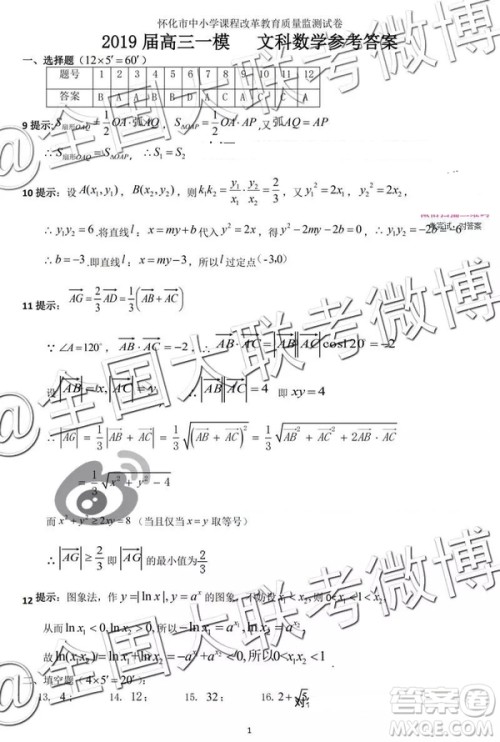 怀化市中小学课程改革教育质量监测试卷
2019 届高三一模 文科数学参考答案
一、选择题（12×5′=60′）
题号 1 2 3 4 5 6 7 8 9 10 11 12
答案 B A
9 提示: S扇形OAQ=1/2 OA·弧AQ，S△OAP=1/2 OA·AP，又
∴S扇形OAQ=S△OAP，∴S₁=S₂
10 提示: 设 A(x₁,y₁)，B(x₂,y₂)，则 k₁k₂=y₁/x₁·y₂/x₂=2/3，又 y₁²=2x₁，y₂²=2x₂，
∴y₁y₂=6.将直线 l：x=my+b 代入 y²=2x 得 y²-2my-2b=0，∴y₁y₂=-2b=6
∴b=-3.即直线 l：x=my-3，所以 l 过定点(-3,0)
对答案
11 提示: AG=2/3 AD=1/3(AB+AC)
∵∠A=120°，AB·AC=-2，∴AB·AC=|AB||AC|cos120°=-2
设|AB|=x,|AC|=y ∴|AB||AC|=4 即 xy=4
∴|AG|=1/3|AB+AC|=1/3√(AB+AC)²=1/3√AB²+AC²+2AB·AC
=1/3√x²+y²-4
而 x²+y²≥2xy=8（当且仅当 x=y 取等号）
∴|AG|≥2/3 即|AG|的最小值为 2/3
12 提示: 图象法，作 y=|ln x|,y=aˣ 的图象，不妨设 x₁<x₂,则 0<x₁<1<x₂,
从而 ln x₁<0,ln x₂>0,所以 -ln x₁=aˣ¹,ln x₂=aˣ²,
故 ln(x₁x₂)=ln x₁+ln x₂=aˣ²-aˣ¹<0,所以 0<x₁x₂<1
二、填空题（4×5′=20′）
13. 4； 14. 12； 15. 32； 16. 2+√5
1
@全国大联考微博
@全国大联考微博
@全国大联考微博
答案圈
MXQE.COM